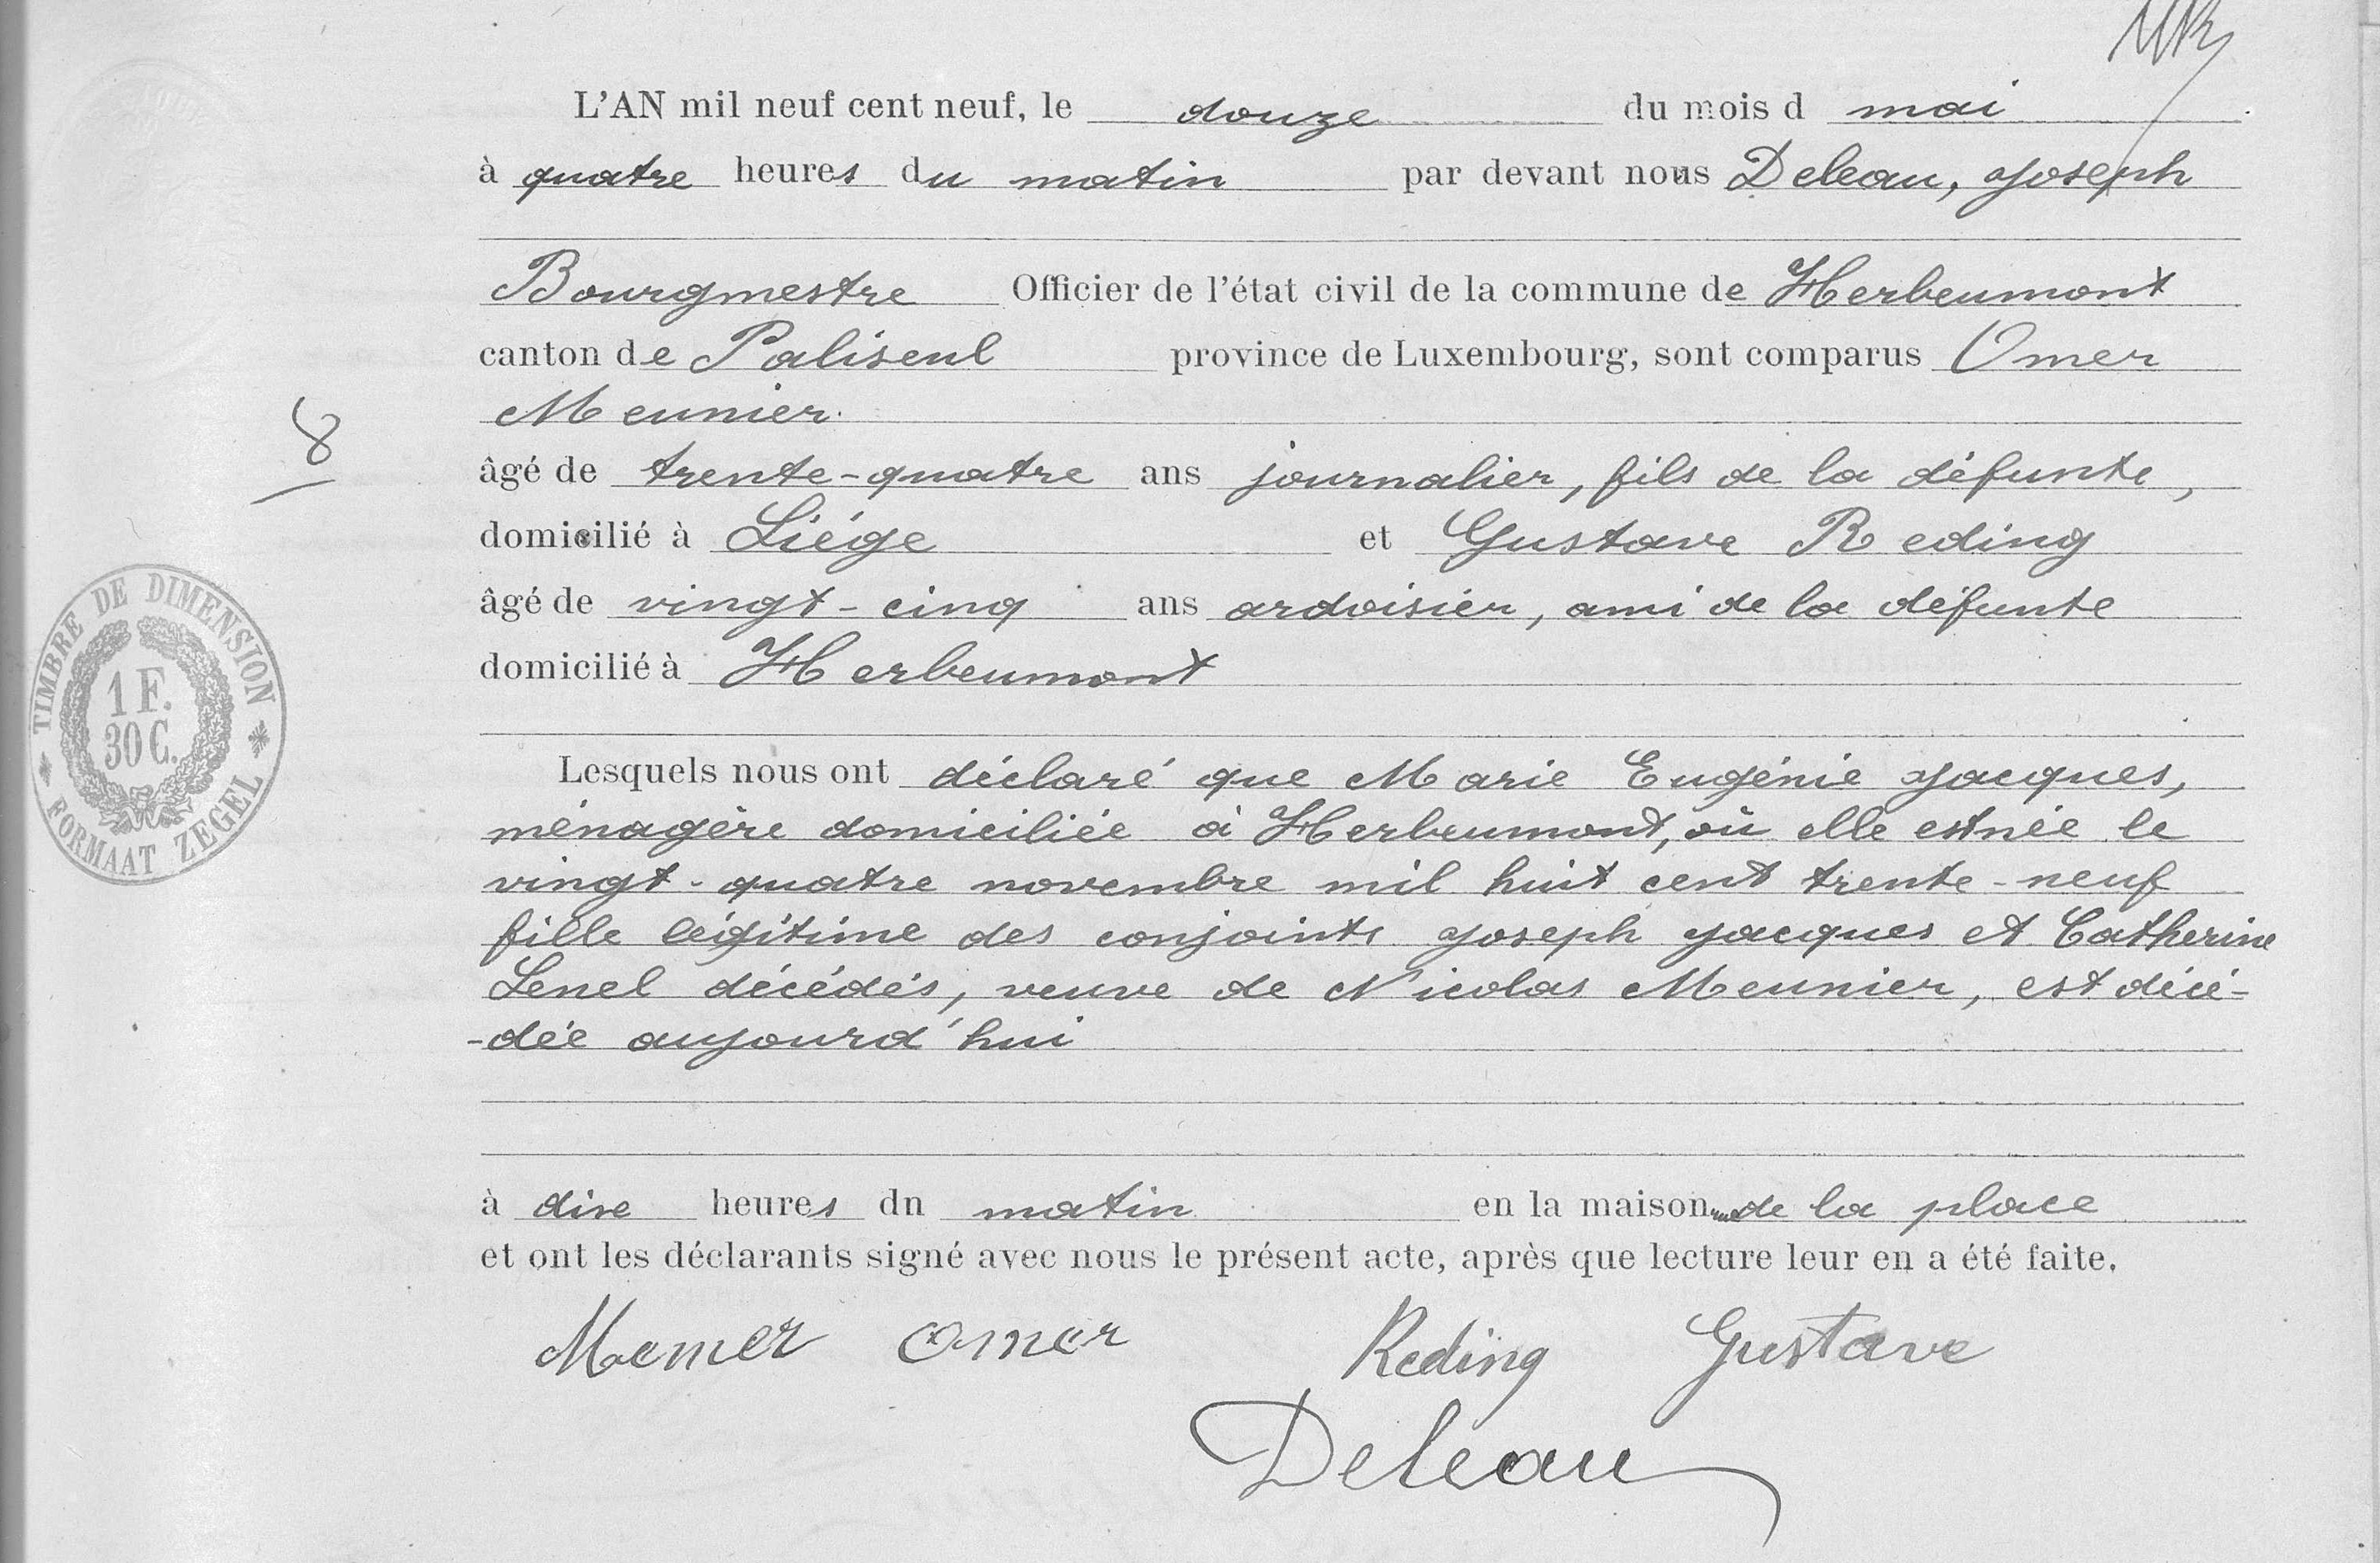 L'AN mil neuf cent neuf, le douze du mois d mai
à quatre heures du matin par devant nous Deleau, Joseph
Bourgmestre Officier de l'état civil de la commune de Herbeumont
canton de Paliseul province de Luxembourg, sont comparus Omer
Meunier
âgé de trente-quatre ans journalier, fils de la défunte,
domicilié à Liége et Gustave Reding
âgé de vingt-cinq ans ardoisier, ami de la défunte
domicilié à Herbeumont
8
TIMBRE DE DIMENSION
1 F.
30 C.
FORMAAT ZEGEL
Lesquels nous ont déclaré que Marie Eugénie Jacques,
ménagère domiciliée à Herbeumont, où elle est née le
vingt-quatre novembre mil huit cent trente-neuf
fille légitime des conjoints Joseph Jacques et Catherine
Lenel décédés, veuve de Nicolas Meunier, est décé-
-dée aujourd'hui
à dix heures du matin en la maison de la place
et ont les déclarants signé avec nous le présent acte, après que lecture leur en a été faite.
Omer Reding Gustave
Deleau